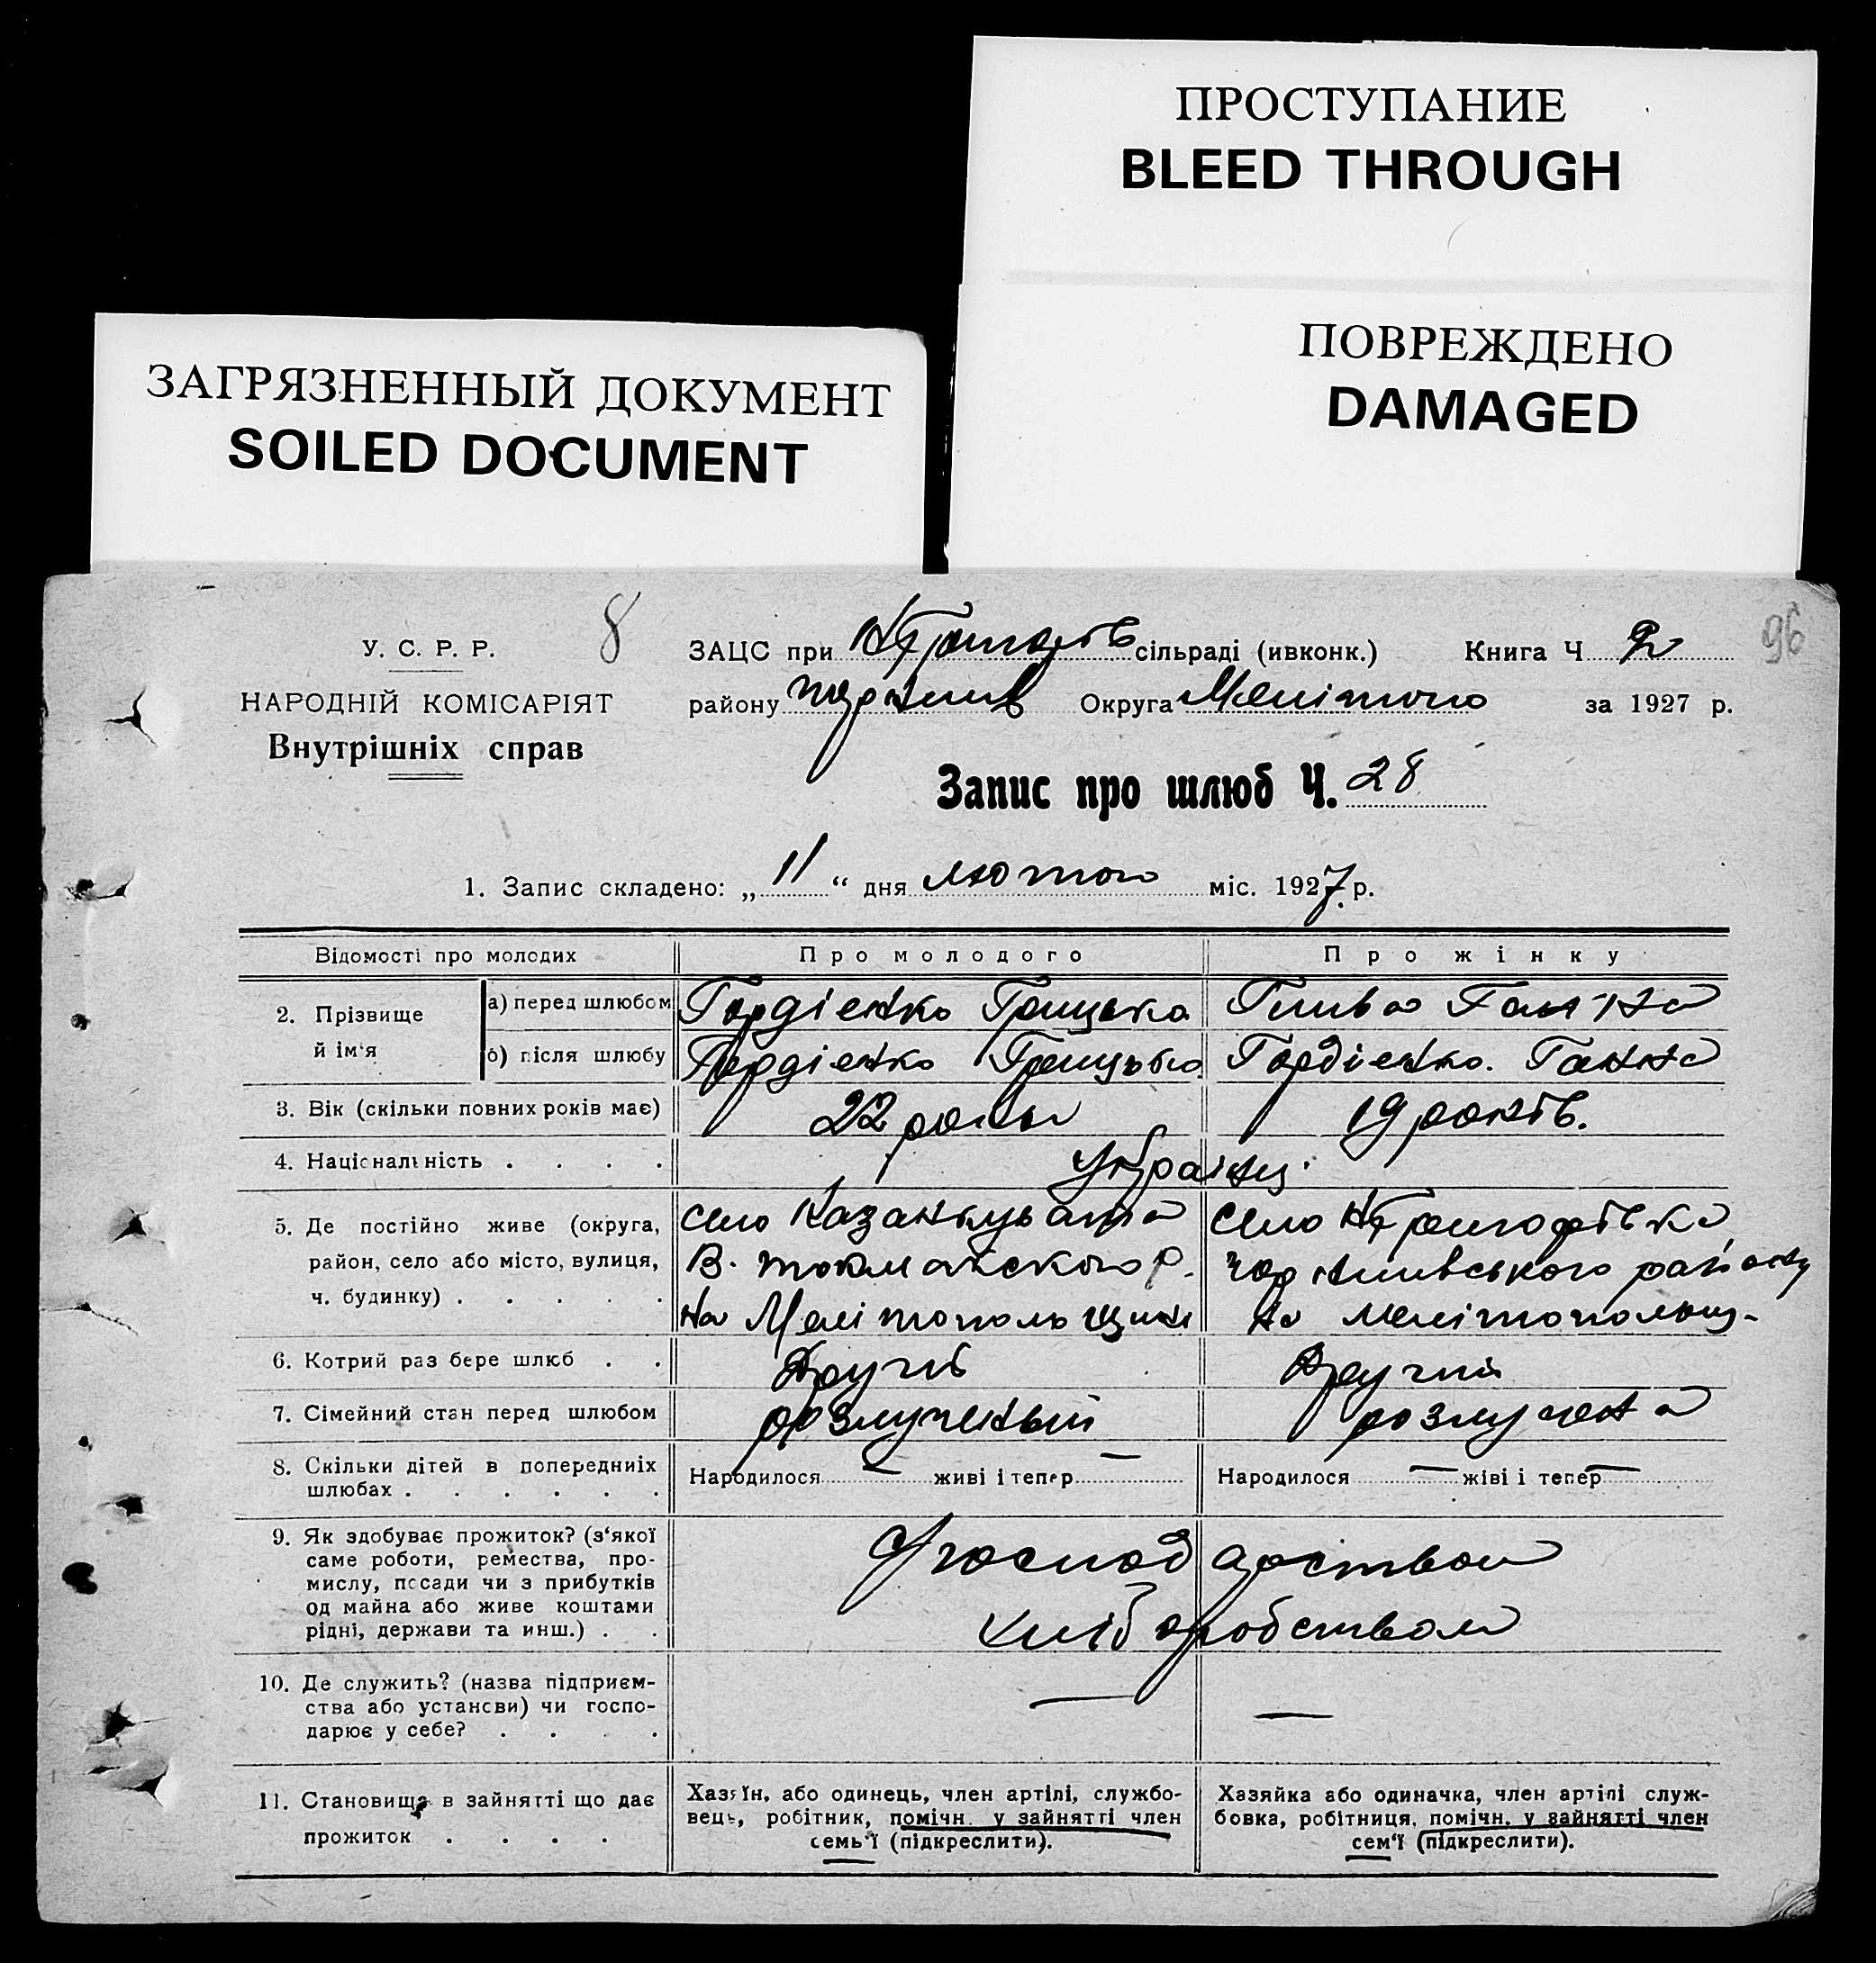 ПРОСТУПАНИЕ
BLEED THROUGH
ПОВРЕЖДЕНО
DAMAGED
ЗАГРЯЗНЕННЫЙ ДОКУМЕНТ
SOILED DOCUMENT
96
8
У. С. Р. Р.
НАРОДНІЙ КОМІСАРІЯТ
Внутрішніх справ
ЗАЦС при сільраді (ивконк.) Книга Ч 2
району Округа Мелітопо за 1927 р.
Запис про шлюб Ч. 28
1. Запис складено: „ 11 “ дня лютого міс. 1927 р.
Відомості про молодих Про молодого Про жінку
2. Прізвище й ім'я
а) перед шлюбом Гордієнко Грицько Глива Ганна
б) після шлюбу Гордієнко Грицько Гордієнко. Ганна
3. Вік (скільки повних років має) 22 роки 19 років.
4. Національність . . . . Українці
5. Де постійно живе (округа,
район, село або місто, вулиця,
ч. будинку) . . . . .
село
В. токмакского р.
на Мелітопольщині
село Н Григорівка
чорнинівського району
на мелітопольщ-
6. Котрий раз бере шлюб . . Другий Другий
7. Сімейний стан перед шлюбом розлученый розлучена
8. Скільки дітей в попередніх
шлюбах . . . . . .
Народилося — живі і тепер —
Народилося — жіві і тепер —
9. Як здобуває прожиток? (з'якої
саме роботи, ремества, про-
мислу, посади чи з прибутків
од майна або живе коштами
рідні, держави та инш.) . .
господарством
хліборобством
10. Де служить? (назва підприєм-
ства або установи) чи госпо-
дарює у себе? . . . .
— —
11. Становища в зайнятті що дає
прожиток . . . .
Хазяїн, або одинець, член артілі, службо-
вець, робітник, помічн. у зайнятті член
семь'ї (підкреслити).
Хазяйка або одиначка, член артілі служ-
бовка, робітниця, помічн. у зайнятті член
сем'ї (підкреслити).